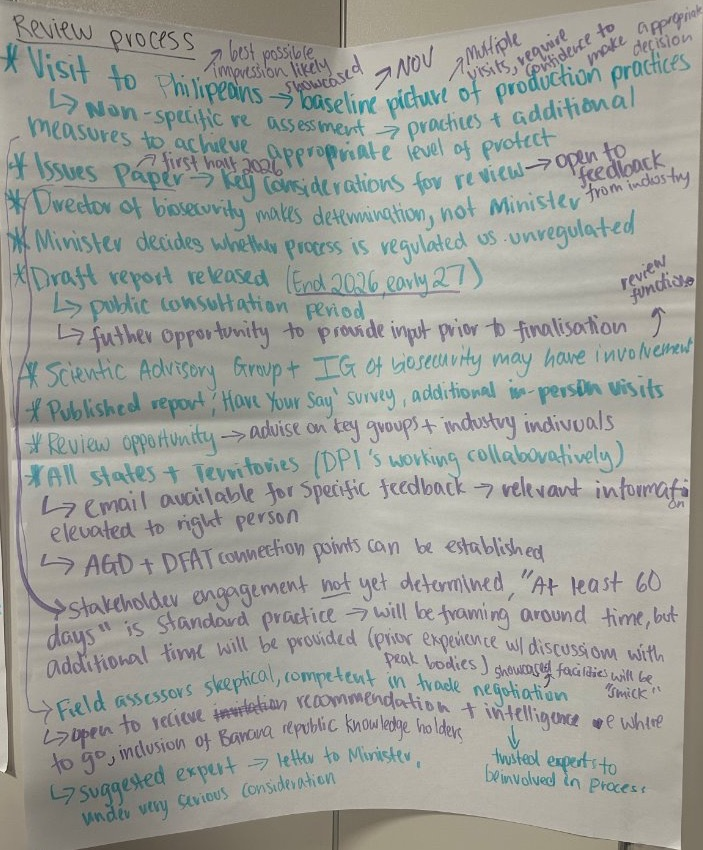 Review process
↗ best possible impression likely showcased
* Visit to Philipeans → baseline picture of production practices
↗ NOV
↗ Multiple visits, require confidence to make appropriate decision
↳ Non-specific re assessment → practices + additional
measures to achieve appropriate level of protect
* Issues Paper → Key considerations for review → open to feedback from industry
↗ first half 2026
* Director of biosecurity makes determination, not Minister
* Minister decides whether process is regulated vs. unregulated
* Draft report released (End 2026, early 27)
↳ public consultation period
↳ futher opportunity to provide input prior to finalisation
review function
* Scientic Advisory Group + IG of biosecurity may have involvement
* Published report, 'Have Your Say' survey, additional in-person visits
* Review opportunity → advise on key groups + industry indivuals
* All states + Territories (DPI's working collaboratively)
↳ email available for specific feedback → relevant information
elevated to right person
↳ AGD + DFAT connection points can be established
→ Stakeholder engagement not yet determined, "At least 60
days" is standard practice → will be framing around time, but
additional time will be provided (prior experience w/ discussiom with
peak bodies)
showcased facilities will be "smick"
↳ Field assessors skeptical, competent in trade negotiation
↳ open to recieve invitation recommendation + intelligence re where
to go, inclusion of Banana republic knowledge holders
↓ trusted experts to
be involved in process
↳ suggested expert → letter to Minister,
under very serious consideration